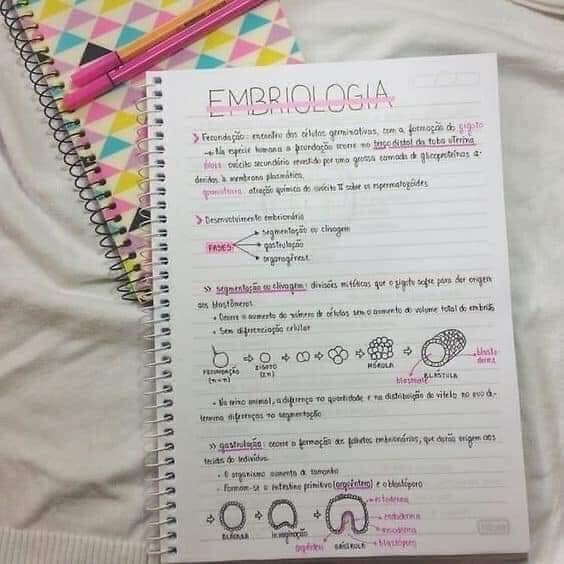 EMBRIOLOGIA
> Fecundação: encontro das células germinativas, com a formação do zigoto
→ Na espécie humana a fecundação ocorre no terço distal da tuba uterina
: ovócito secundário revestido por uma grossa camada de glicoproteínas a-
deridas à membrana plasmática.
: atração química do ovócito II sobre os espermatozóides
> Desenvolvimento embrionário
→ segmentação ou clivagem
FASES → gastrulação
→ organogênese
>> segmentação ou clivagem: divisões mitóticas que o zigoto sofre para dar origem
aos blastômeros.
• Ocorre o aumento do número de células sem o aumento do volume total do embrião
• Sem diferenciação celular
FECUNDAÇÃO
(n+n)
ZIGOTO
(2n)
MÓRULA
BLÁSTULA
blasto-
derme
blastocele
• No reino animal, a diferença na quantidade e na distribuição do vitelo no ovo de-
termina diferenças na segmentação
>> gastrulação: ocorre a formação dos folhetos embrionários, que darão origem aos
tecidos do indivíduo.
• O organismo aumenta de tamanho
• Formam-se o intestino primitivo (arquêntero) e o blastóporo
ectoderma
endoderma
mesoderma
blastóporo
BLÁSTULA
invaginação
GÁSTRULA
arquêntero